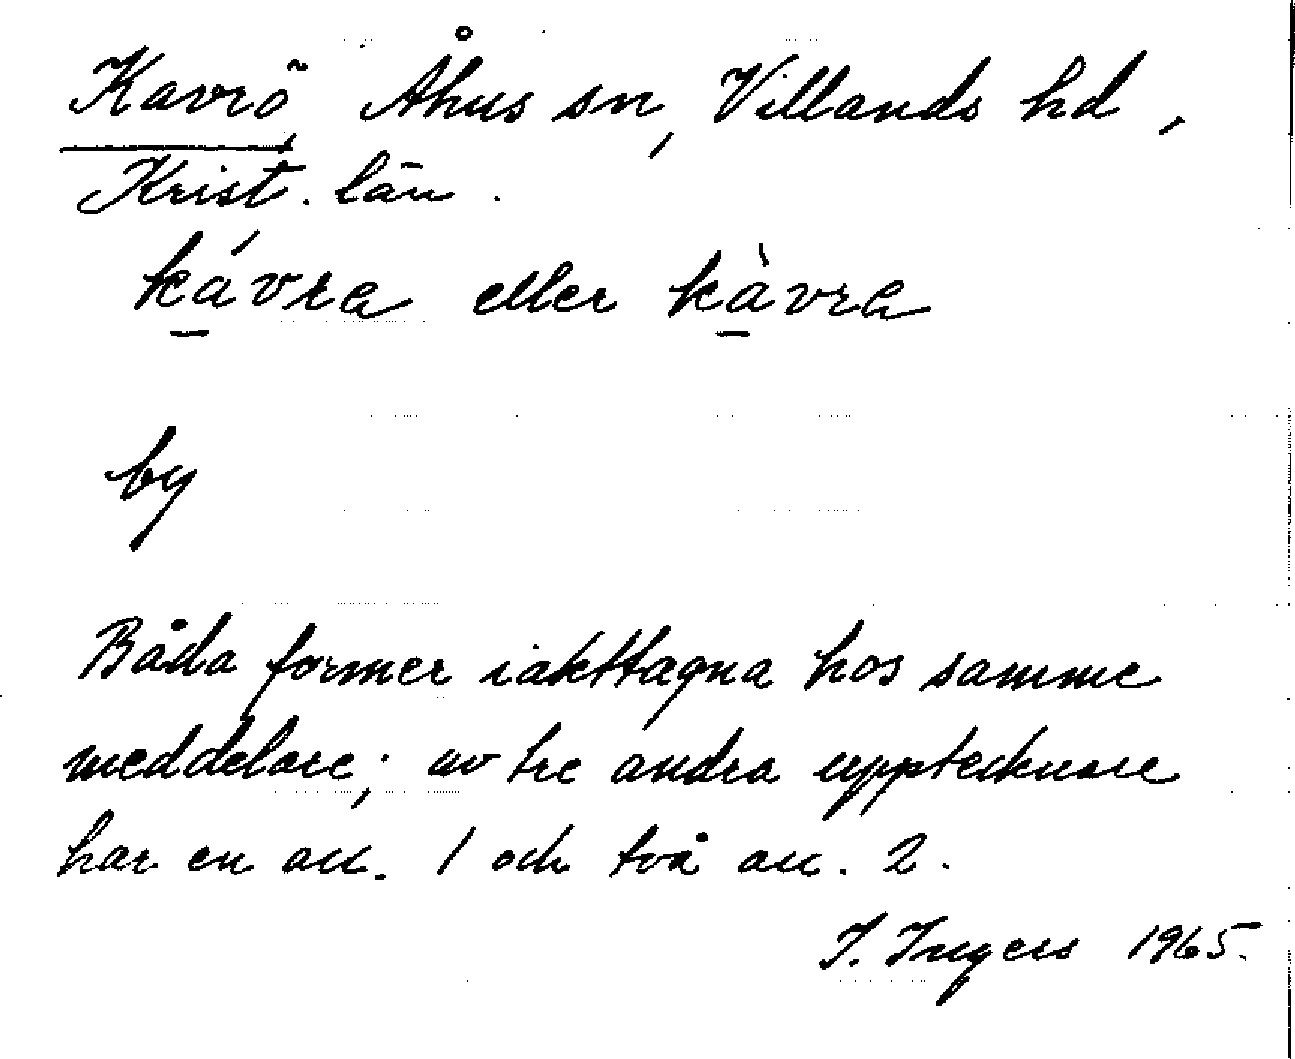 Kavrö, Åhus sn, Villands hd,
Krist. län.
ká̱vra eller kà̱vra
by
Båda former iakttagna hos samme
meddelare; av tre andra upptecknare
har en acc. 1 och två acc. 2.
I. Ingers 1965.